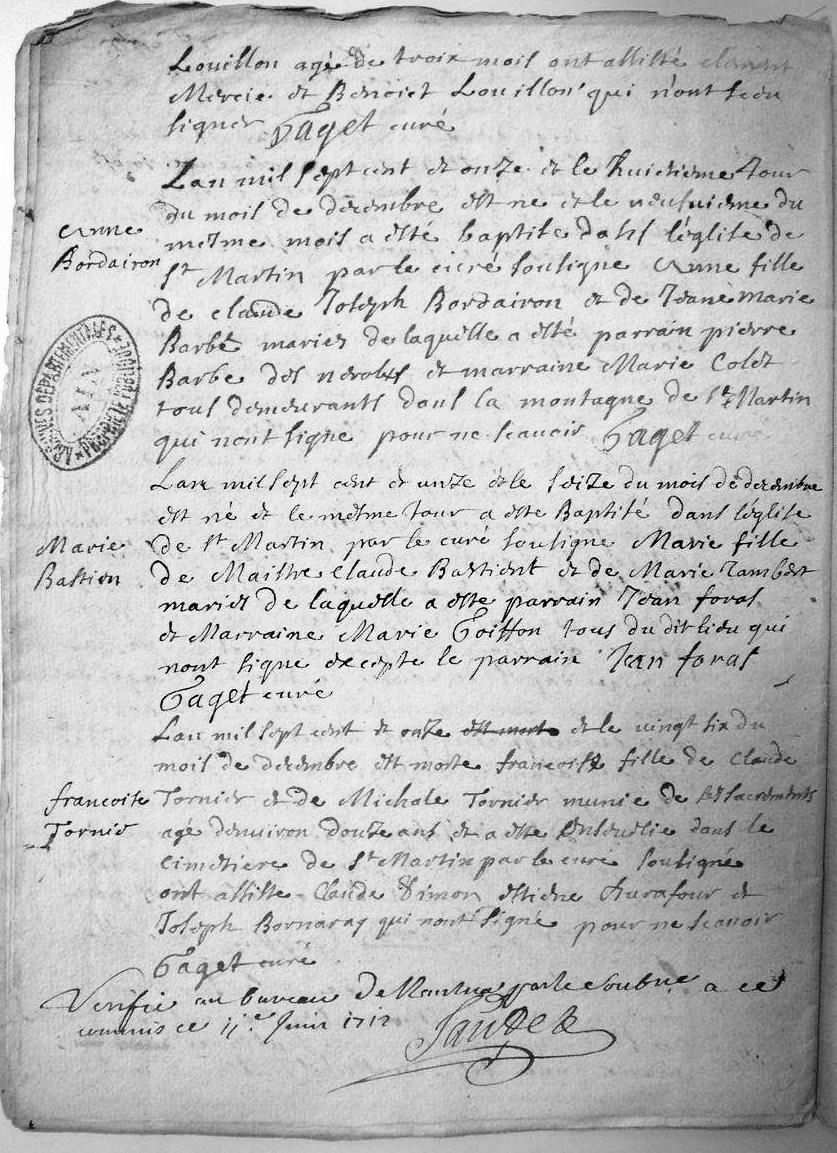 Louillon agé de troix mois ont assisté clement
Mercie et Benoict Louillon qui n'ont sceu
signer Gaget curé
Lan mil sept cent et onze et le huictieme jour
du mois de decembre est ne et le neufuieme du
mesme mois a esté baptise dans l'eglise de
St Martin par le curé soussigne Anne fille
de claude Joseph Bordairon et de Jeane marie
Barbe mariez de laquelle a esté parrain pierre
Barbe des et marraine Marie Colet
tous demeurants dans la montagne de St Martin
qui nont signe pour ne scauoir Gaget curé
Anne
Bordairon
ARCHIVES DÉPARTEMENTALES
AIN
PROPRIÉTÉ PUBLIQUE
Lan mil sept cent et onze et le seize du mois de decembre
est né et le mesme jour a este Baptisé dans leglise
de St Martin par le curé soussigne Marie fille
de Maistre claude Bastient et de Marie Jambert
mariez de laquelle a este parrain Jean foras
et Marraine Marie Goiffon tous du dit lieu qui
nont signe excepte le parrain Jean foras
Gaget curé
Marie
Bastien
Lan mil sept cent et onze est morte et le vingt six du
mois de decembre est morte francoise fille de Claude
Tornier et de Michale Tornier munie de ses sacrements
agé denuiron douze ans et a este enseuelie dans le
cimetiere de St Martin par le cure soussigné
ont assiste Claude Simon estiene Durafour et
Joseph Bornaray qui nont signé pour ne scauoir
Gaget curé
francoise
Tornie
Verifie au bureau De Nantua par le soubne a ce
commis ce 11e Juin 1712